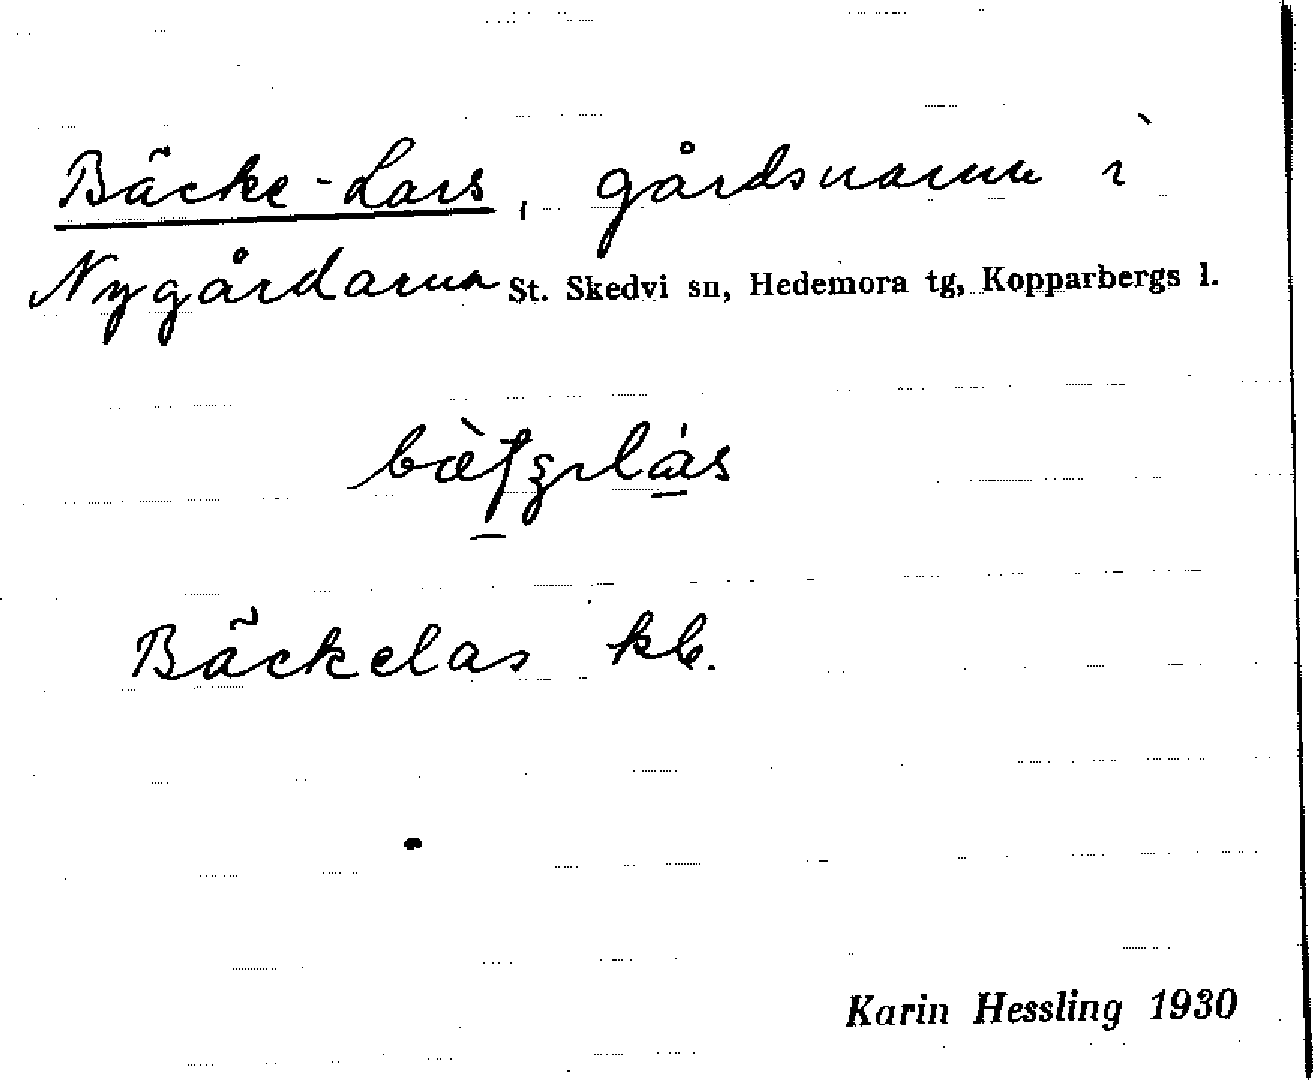 Bäcke-Lars, gårdsnamn i
Nygårdarna St. Skedvi sn, Hedemora tg, Kopparbergs l.
Bäckelas kb.
Karin Hessling 1930